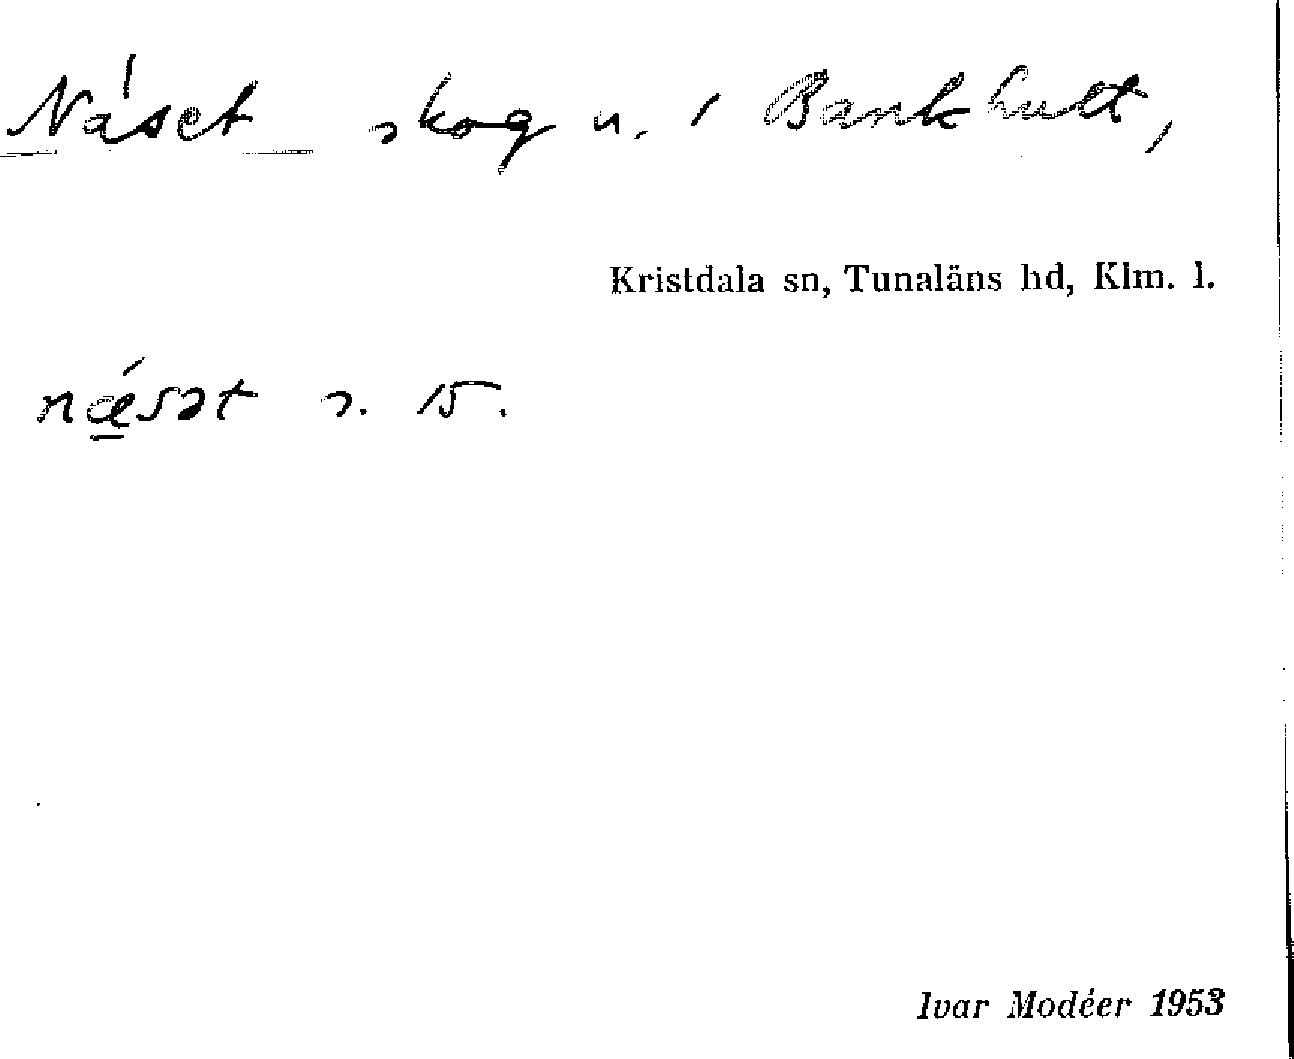 Näset skog n. i Bankhult,
Kristdala sn, Tunaläns hd, Klm. l.
nǽ̲sət s. 15.
Ivar Modéer 1953